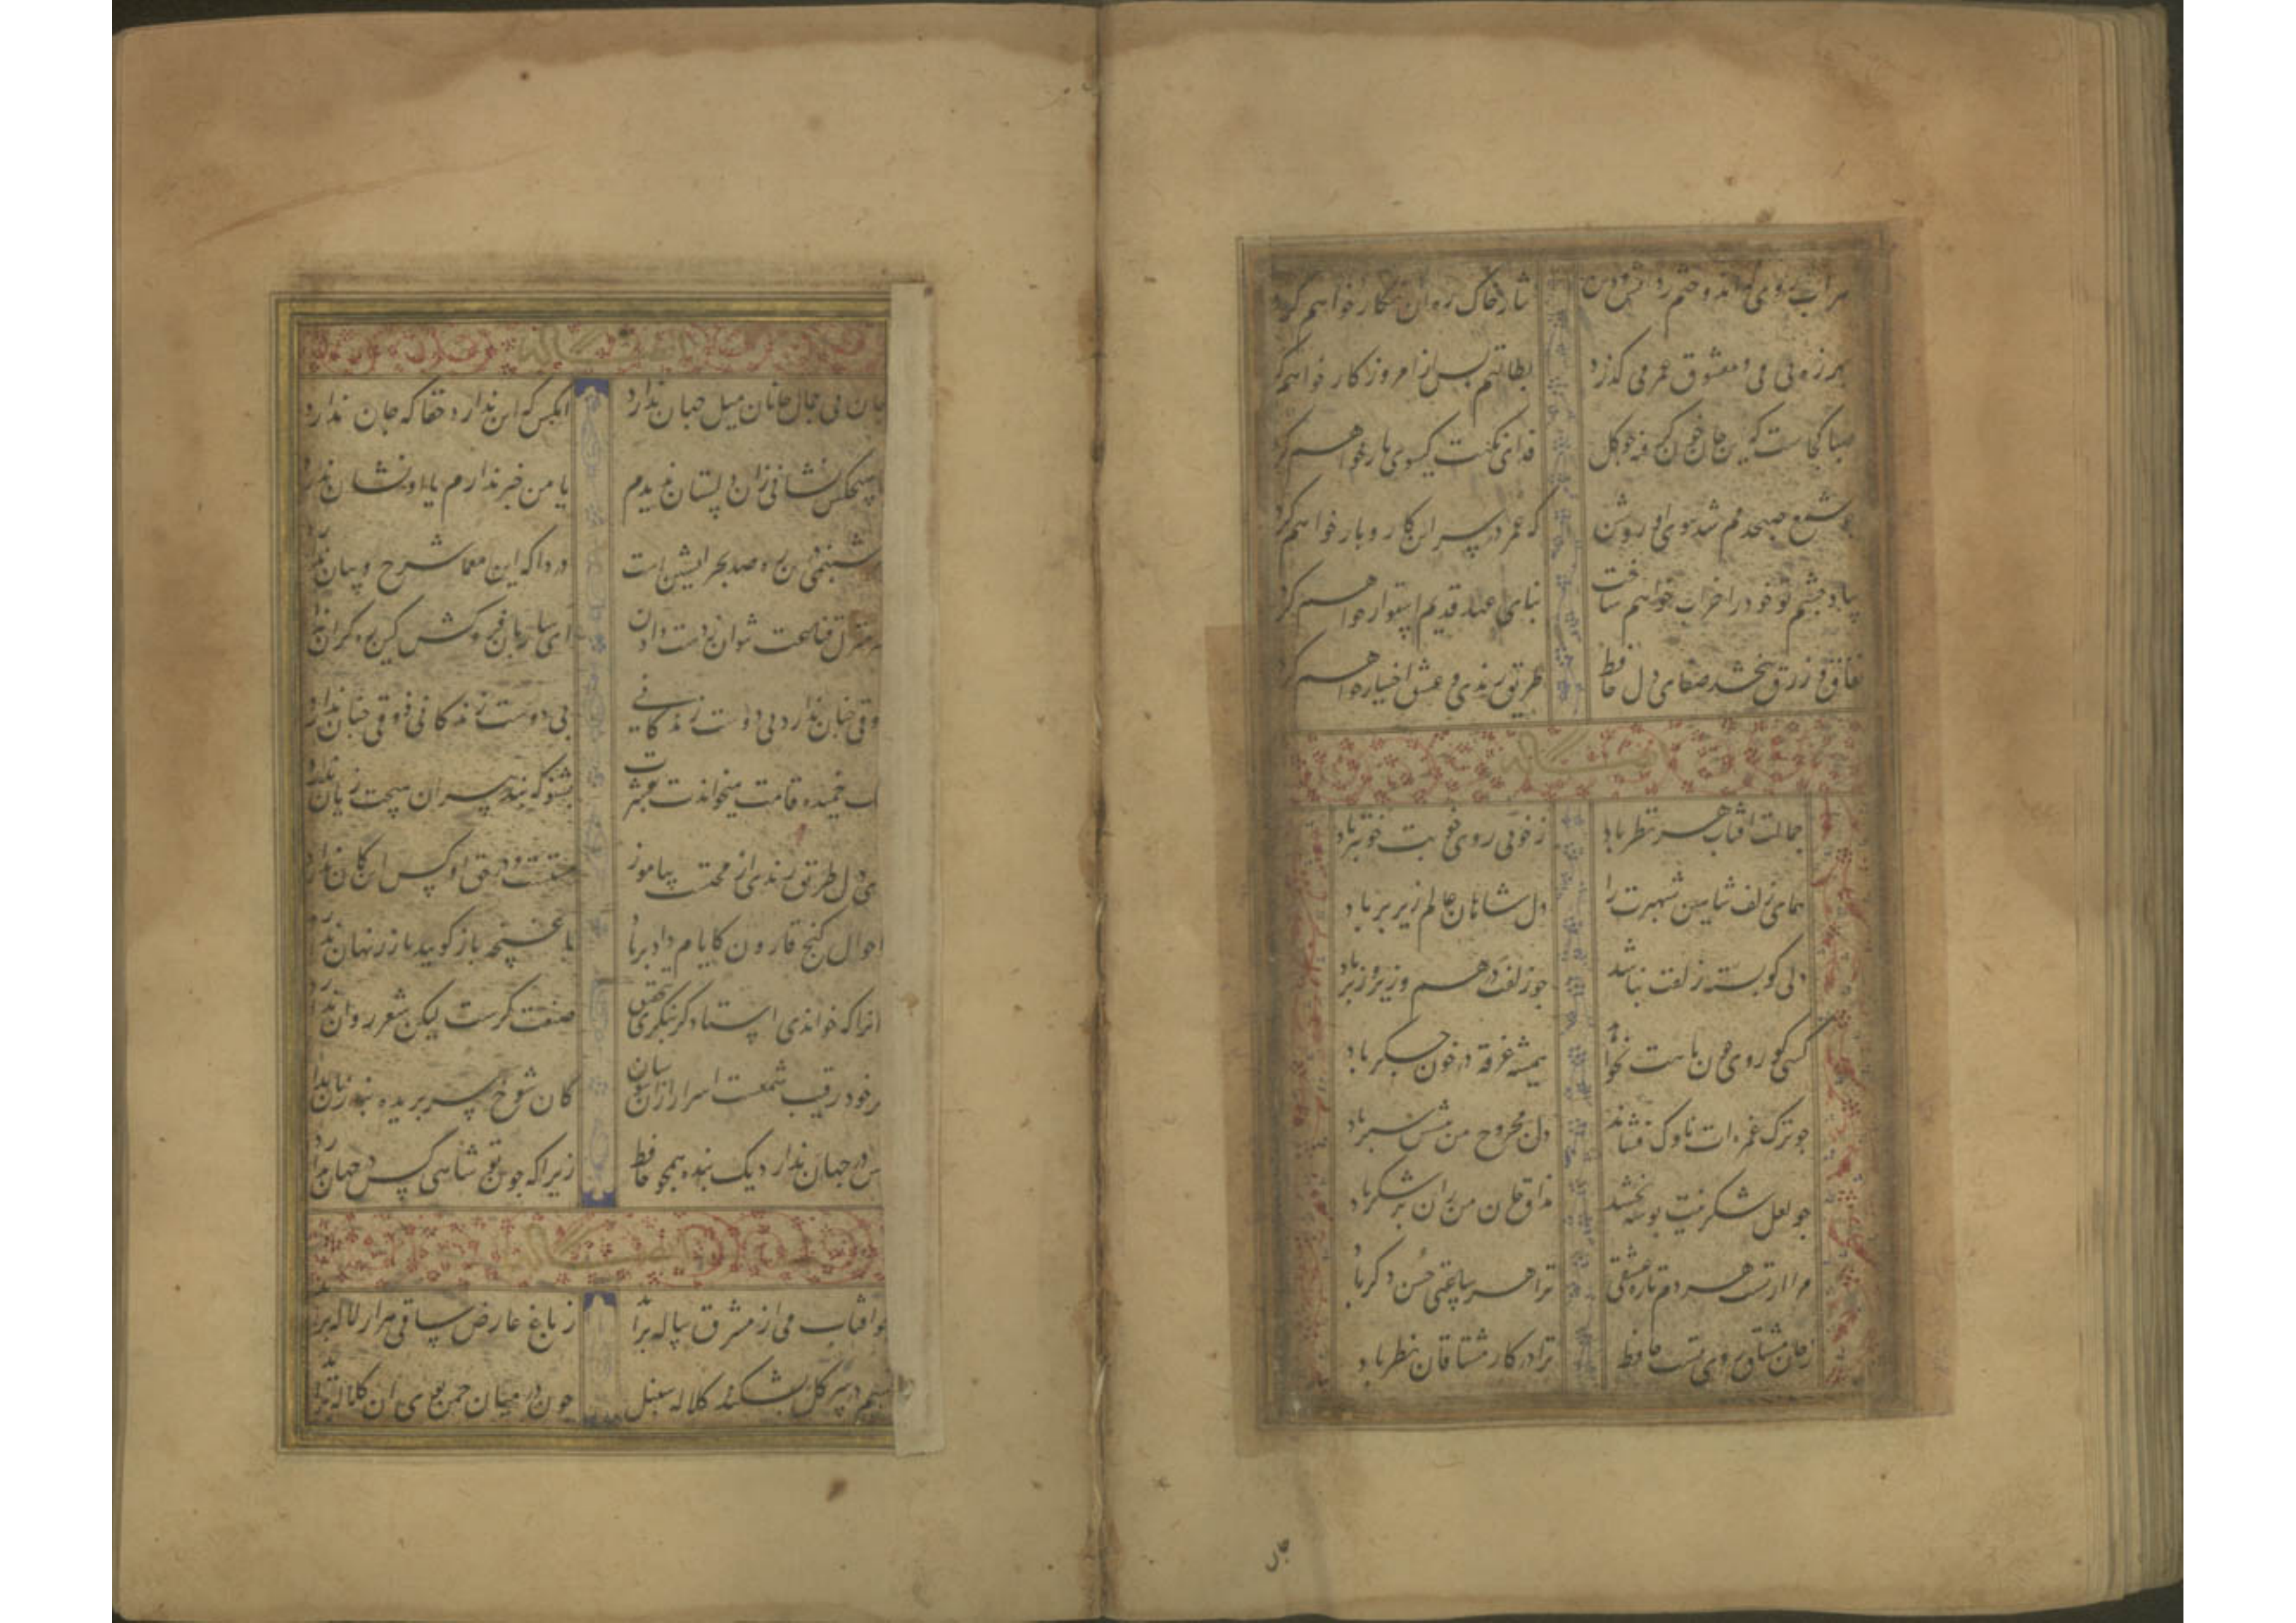 هر آب روی که اندوختم ز دانش و دین نثار خاک ره آن نگار خواهم کرد
بهرزه بی می و معشوق عمر می گذرد بطالتم بس از امروز کار خواهم کرد
صبا کجاست که این جان خون گرفته چو گل فدای نکهت گیسوی یار خواهم کرد
چو شمع صبحدمم شد ز بوی او روشن که عمر در سر این کار و بار خواهم کرد
بیاد چشم تو خود را خراب خواهم ساخت بنای عهد قدیم استوار خواهم کرد
نفاق و زرق نبخشد صفای دل حافظ طریق رندی و عشق اختیار خواهم کرد
جمالت افتاب هر نظر باد ز خوبی روی خوبت خوبتر باد
همای زلف شاهین شهپرت را دل شاهان عالم زیر پر باد
دلی کو بسته زلفت نباشد چو زلفت درهم و زیر و زبر باد
کسی کو روی چون ماهت نخواهد همیشه غرقه در خون جکر باد
چو ترک غمزه ات ناوک فشاند دل مجروح من پیشش سپر باد
چو لعل شکرینت بوسه بخشد مذاق جان من زان پر شکر باد
مرا از تست هر دم تازه عشقی ترا هر ساعتی حسن دکر باد
ز جان مشتاق روی تست حافظ ترا در کار مشتاقان نظر باد
جان
جان بی جمال جانان میل جهان ندارد انکس که این ندارد حقا که جان ندارد
با هیچکس نشانی زان دلستان ندیدم یا من خبر ندارم یا او نشان ندارد
هر شبنمی درین ره صد بحر اتشین است دردا که این معما شرح و بیان ندارد
سر منزل قناعت نتوان ز دست دادن ای ساربان فروکش کین ره کران ندارد
ذوقی چنان ندارد بی دوست زندکانی بی دوست زندکانی ذوقی چنان ندارد
چنک خمیده قامت میخواندت بعشرت بشنو که پند پیران هیچت زیان ندارد
ای دل طریق رندی از محتسب بیاموز مستست و در حق او کس این کمان ندارد
احوال کنج قارون کایام داد بر باد با غنچه باز کویید تا زر نهان ندارد
انرا که خواندی استاد کر بنکری بتحقیق صنعت کرست لیکن شعر روان ندارد
کر خود رقیب شمعست اسرار ازو بپوشان کان شوخ سر بریده بند زبان ندارد
کس در جهان ندارد یک بنده همچو حافظ زیرا که چون تو شاهی کس در جهان ندارد
چو افتاب می از مشرق پیاله برآید ز باغ عارض ساقی هزار لاله برآید
نسیم در سر کل بشکند کلاله سنبل چون در میان چمن بوی ان کلاله برآید